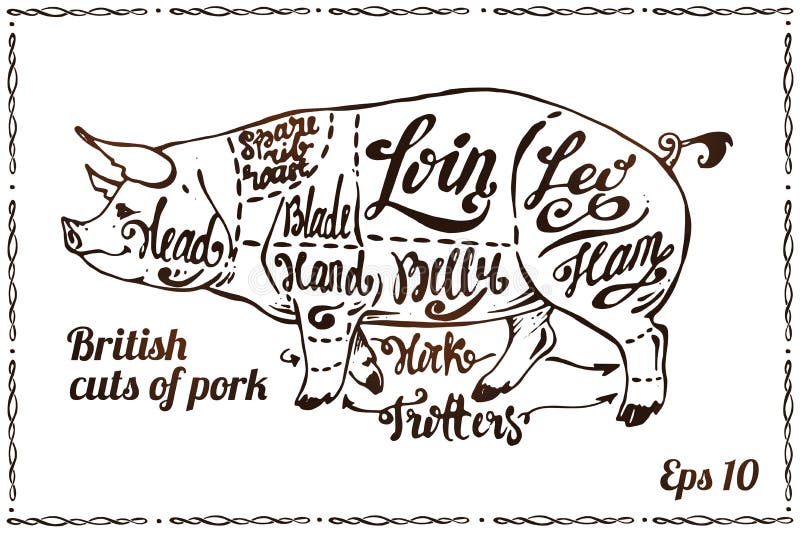 Spare
rib
roast
Loin
Leg
Blade
Head
Hand
Belly
Ham
British
cuts of pork
Hock
Trotters
Eps 10